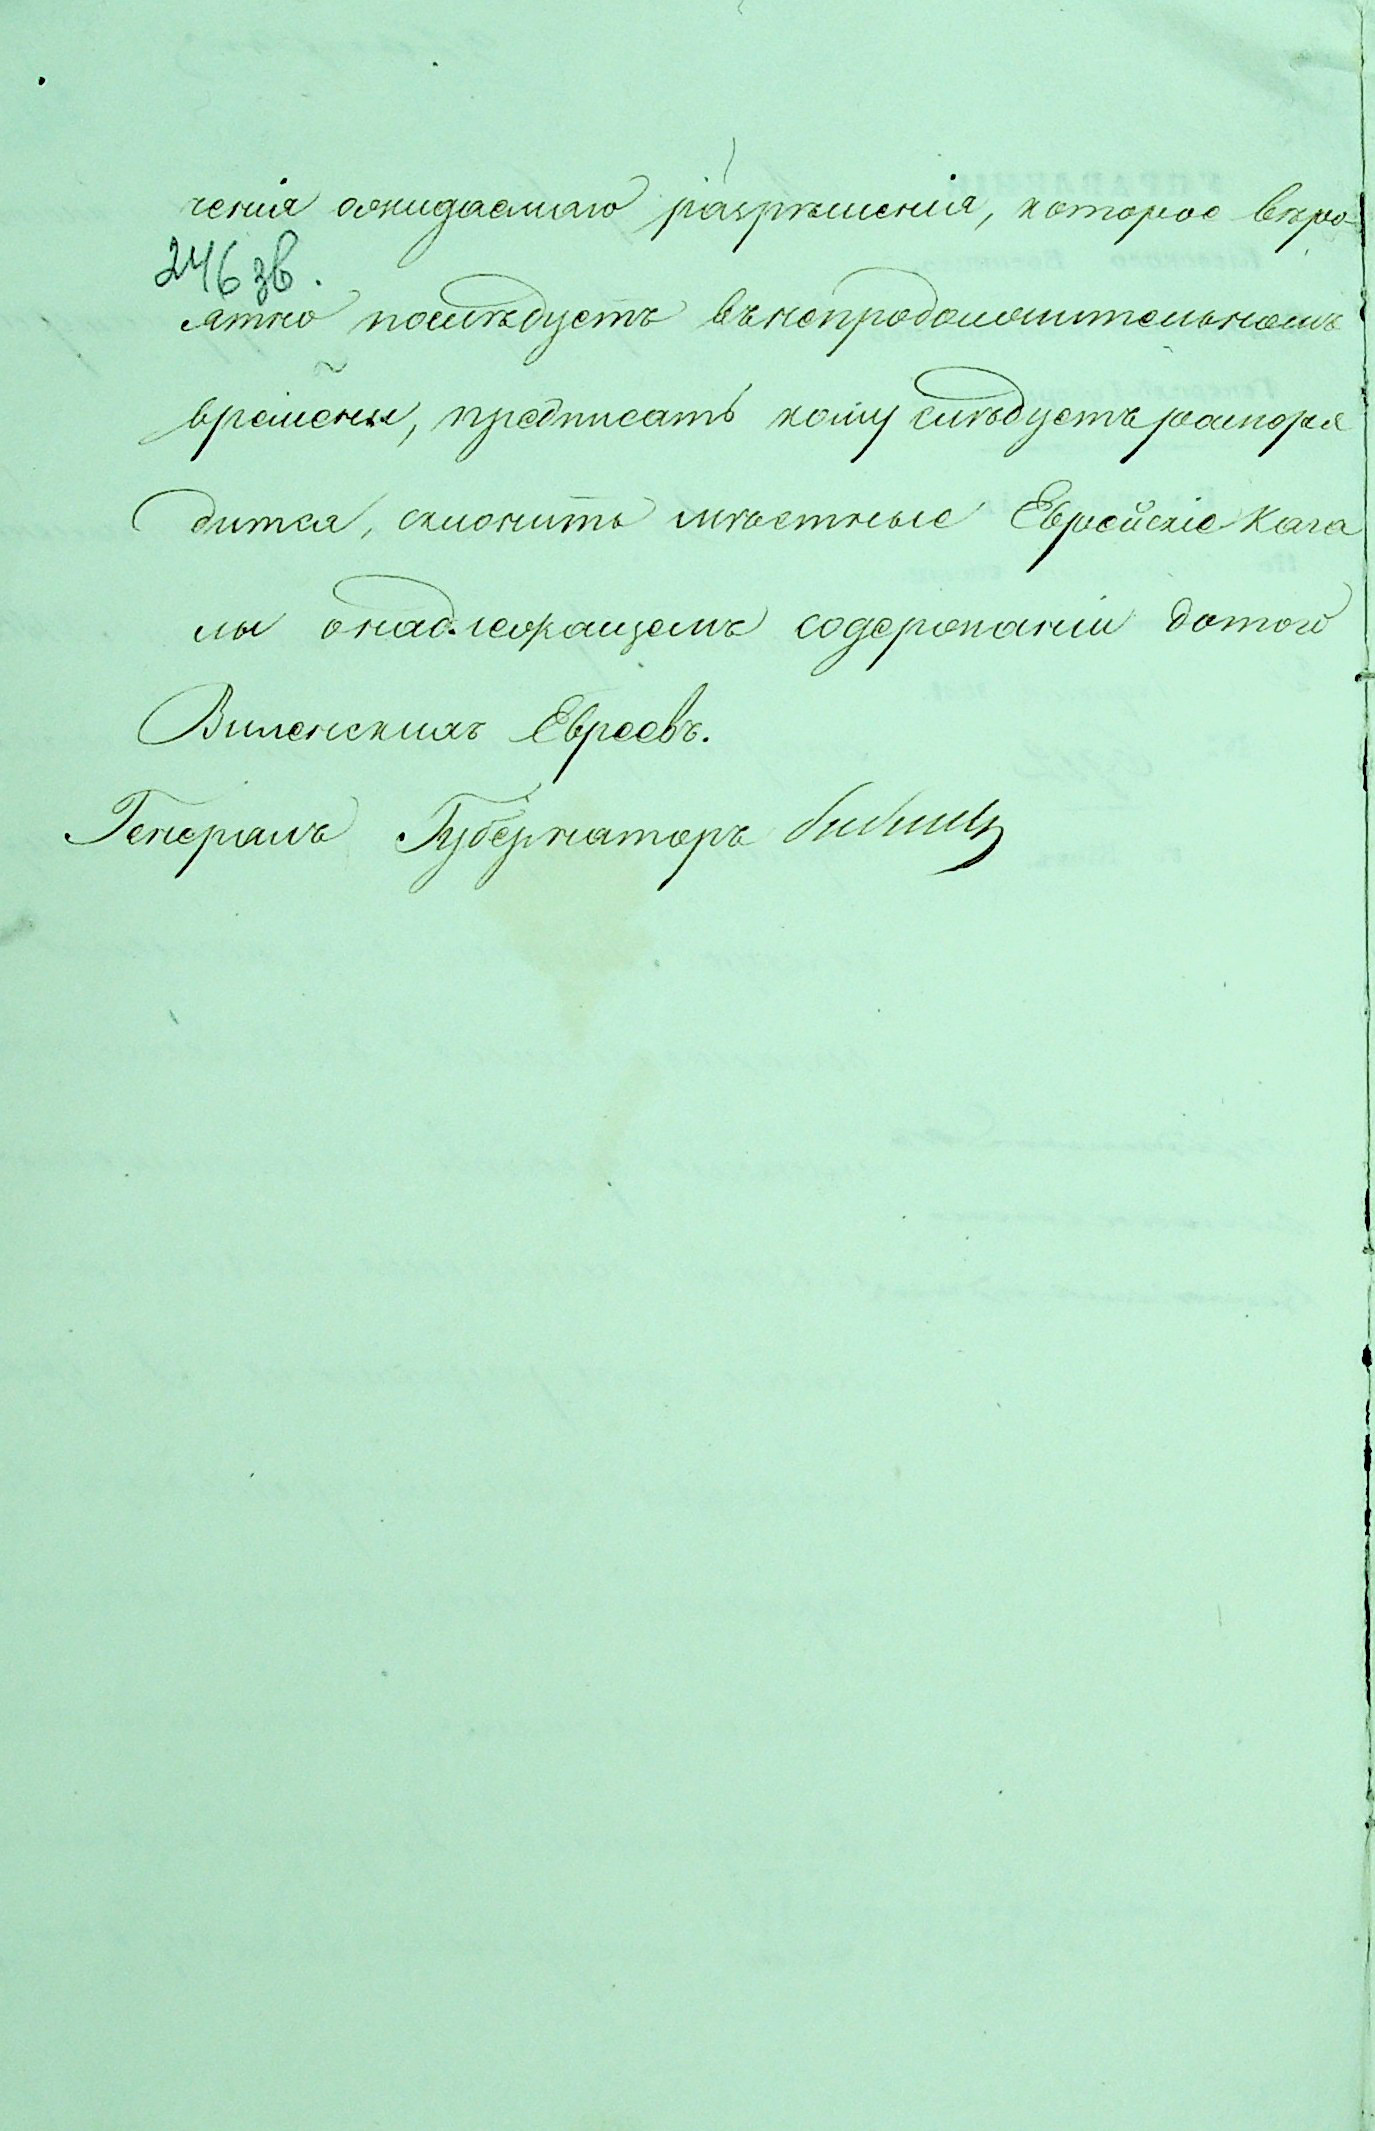 ченія ожидаемаго разрѣшенія, которое вѣро-
246 зв.
ятно послѣдуетъ въ непродолжительномъ
времени, предписать кому слѣдуетъ распоря
дится, склонить мѣстные Еврейскіе Кага
лы онадлежащемъ содержаніи дотого
Виленскихъ Евреевъ.
Генералъ Губернаторъ Бибиковъ